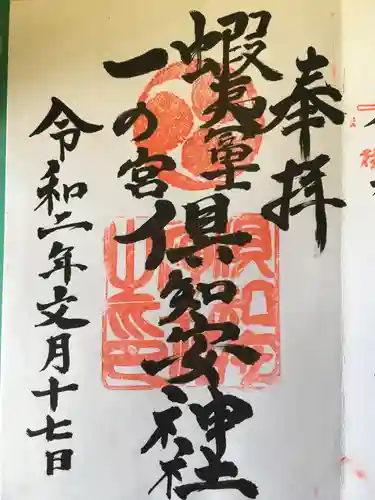 奉拝
蝦夷富士
一の宮
倶知安神社
令和二年文月十七日